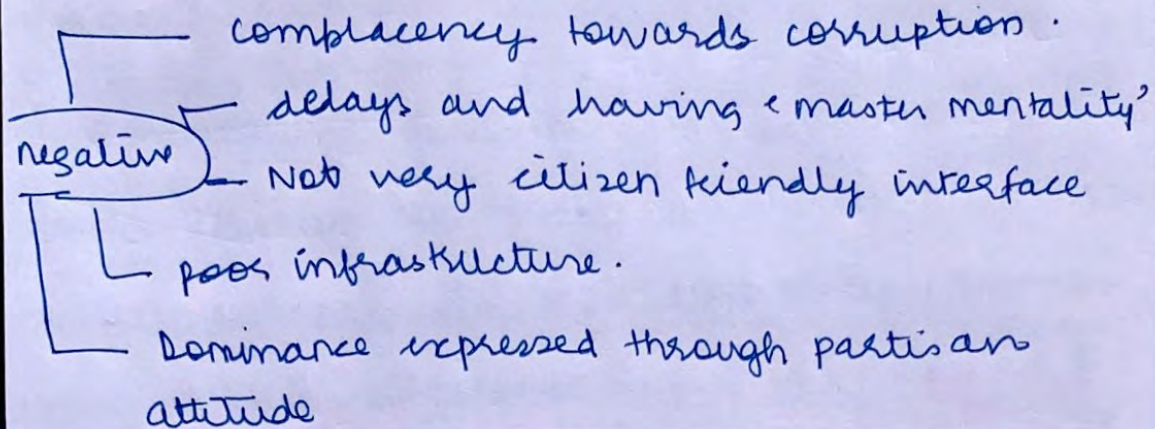 complacency towards corruption.
delays and having 'master mentality'
negative
Not very citizen friendly interface
poor infrastructure.
Dominance expressed through partisan
attitude